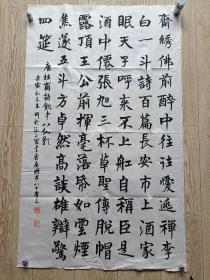 齋綉佛前醉中往往愛逃禅李
白一斗詩百篇長安市上酒家
眠天子呼来不上船自稱臣是
酒中僊張旭三杯草聖傳脱帽
露頂王公前揮毫落帋如雲煙
焦遂五斗方卓然高談雄辯驚
四筵
唐杜甫詩飲中八仙歌